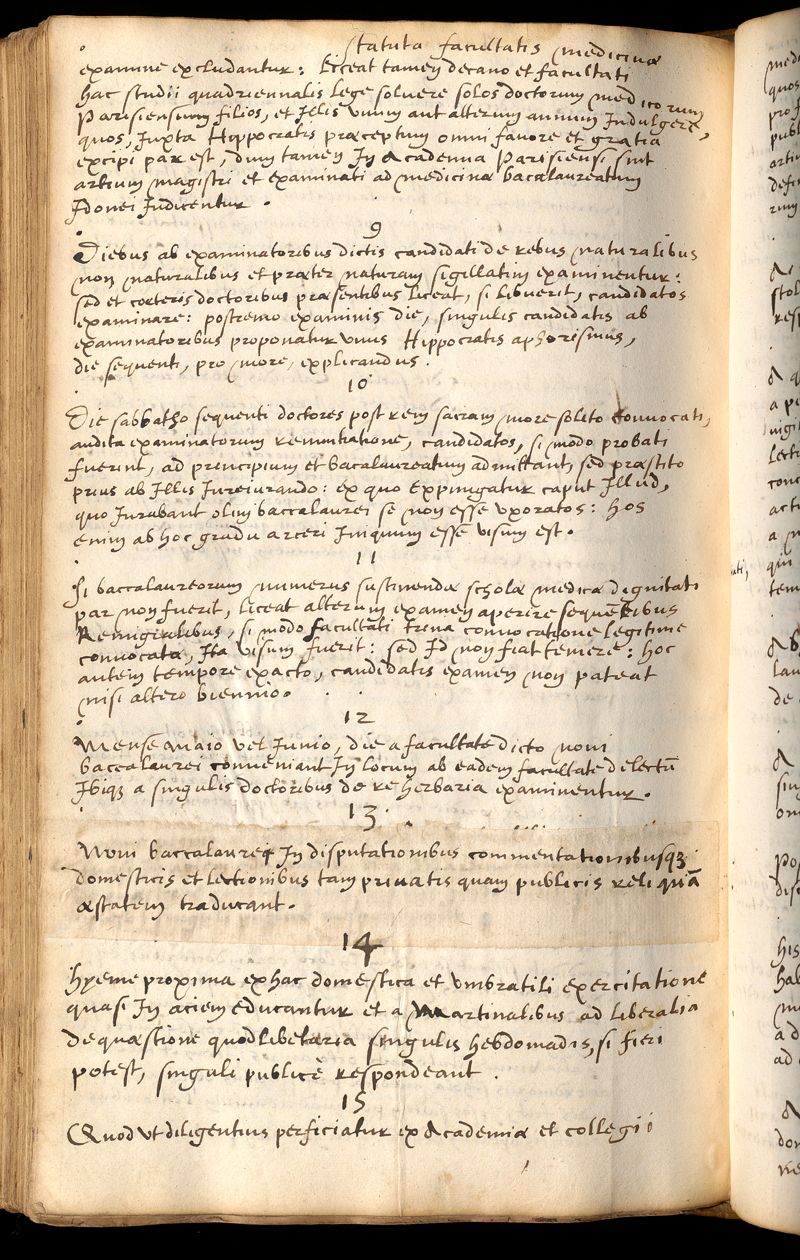 Statuta facultatis medicinæ
examine excludantur: Liceat tamen decano et facultati
hac studii quadriennalis lege soluere solos doctorum medicorum
Parisiensium filios, et Illis vnum aut alterum annum Indulgere,
quos, Iuxta Hippocratis præceptum omni fauore et gratia
excipi par est, dum tamen In Academia Parisiensi sint
artium magistri et examinati ad medicinæ bacalaureatum
Idonei Iudicentur.
9
Diebus ab examinatoribus dictis candidati de rebus naturalibus
non naturalibus et præter naturam sigillatim examinentur:
sed et cœteris doctoribus præsentibus liceat, si libuerit, candidatos
examinare: postremo examinis die, singulis candidatis ab
examinatoribus proponatur vnus Hippocratis aphorismus,
die sequenti, pro more, explicandus.
10
Die sabbatho sequenti doctores post rem sacram more solito Conuocati,
audita examinatorum renuntiatione, candidatos, si modo probati
fuerint, ad principium et bacalaureatum admittant, sed præstito
prius ab Illis Iureiurando: ex quo Expungatur caput Illud,
quo Iurabant olim baccalaurei se non esse vxoratos: hos
enim ab hoc gradu arceri Iniquum esse visum est.
11
Si baccalaureorum numerus sustinendæ scholæ medicæ dignitati
par non fuerit, liceat alterum examen aperire sequentibus
Remigialibus, si modo facultati trina conuocatione legitime
conuocatæ, Ita visum fuerit: sed Id non fiat temere: hoc
autem tempore exacto, candidatis examen non pateat
nisi altero biennio.
12
Mense Maio vel Iunio, die a facultate dicto noui
baccalaurei conueniant In locum ab eadem facultate delectū
Ibiqȝ a singulis doctoribus de re herbaria examinentur.
13
Noui baccalaurei In disputationibus commentationibusqȝ
domesticis et lectionibus tam priuatis quam publicis reliquā
æstatem traducant.
14
hyeme proxima ex hac domestica et vmbratili exercitatione
quasi In aciem educantur et a Martinalibus ad liberalia
de quæstione quodlibetaria singulis hebdomadis, si fieri
potest, singuli publicè respondeant.
15
Quod vt diligentius perficiatur ex Academiæ et collegii